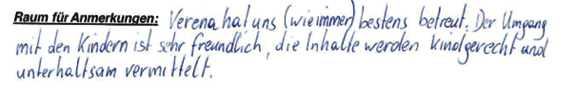 Raum für Anmerkungen: Verena hat uns (wie immer) bestens betreut. Der Umgang
mit den Kindern ist sehr freundlich, die Inhalte werden kindgerecht und
unterhaltsam vermittelt.